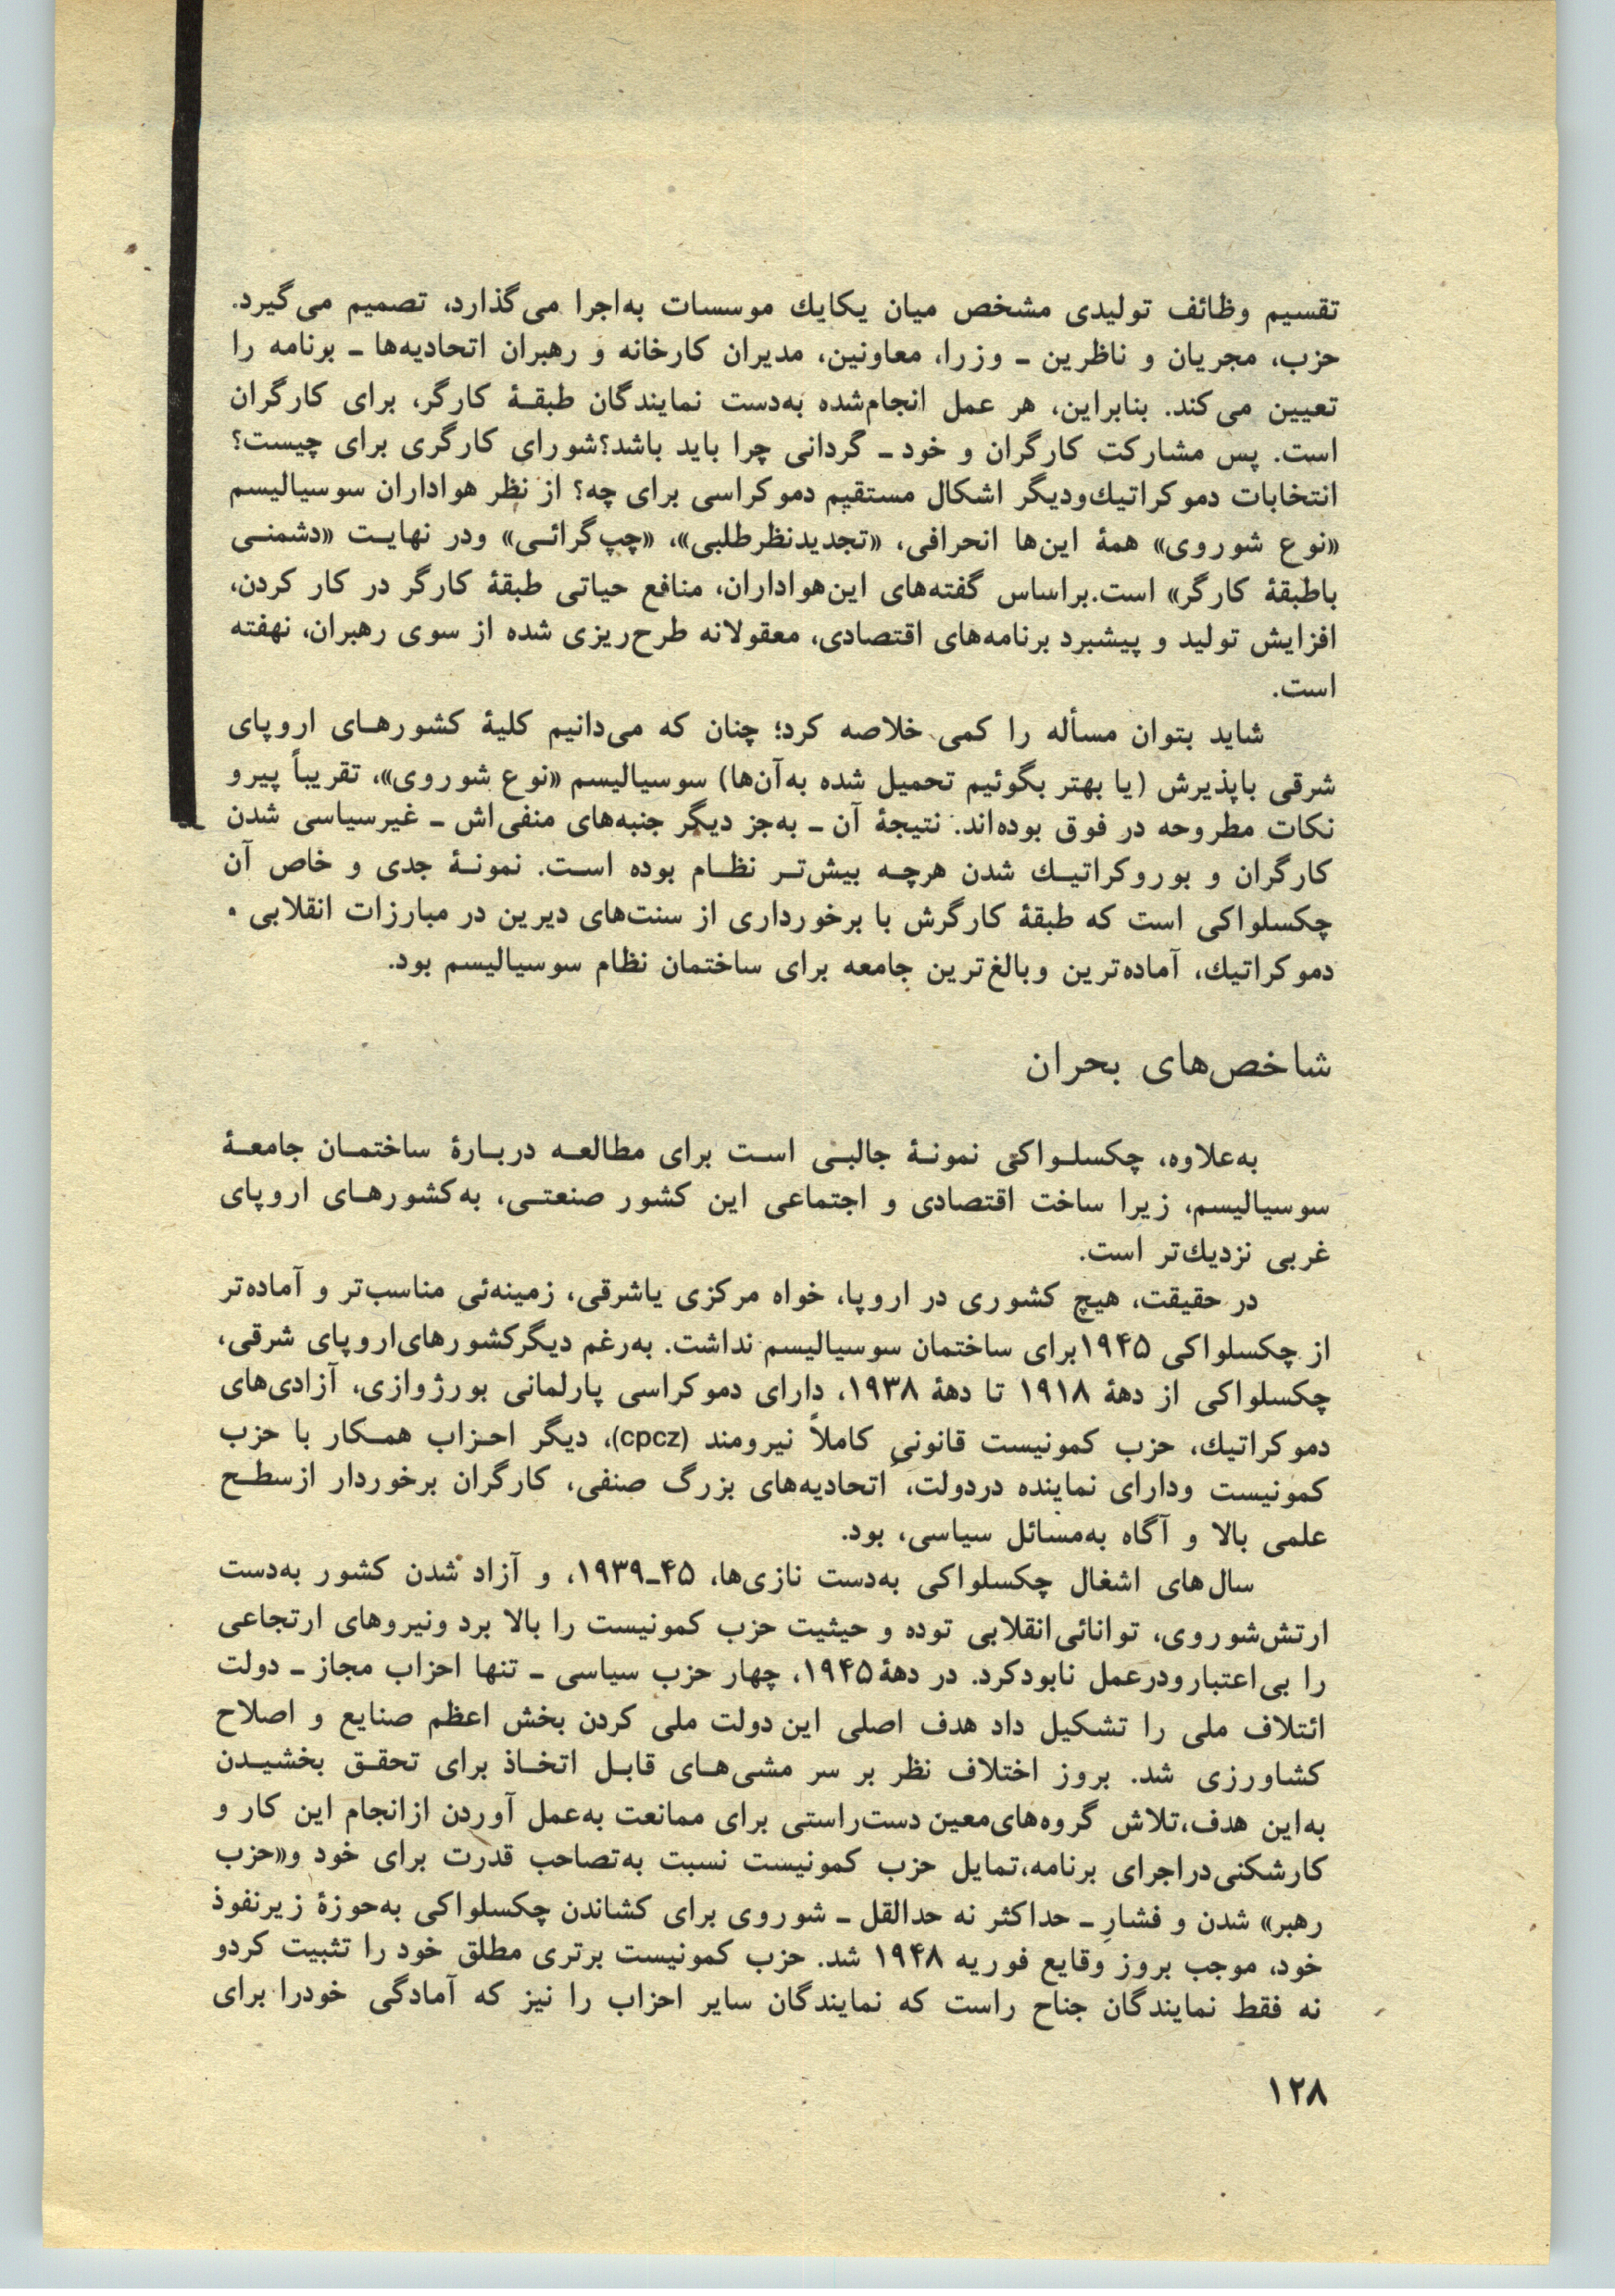 تقسیم وظائف تولیدی مشخص میان یکایك موسسات به‌اجرا می‌گذارد، تصمیم می‌گیرد.
حزب، مجریان و ناظرین ـ وزرا، معاونین، مدیران کارخانه و رهبران اتحادیه‌ها ـ برنامه را
تعیین می‌کند. بنابراین، هر عمل انجام‌شده به‌دست نمایندگان طبقـۀ کارگر، برای کارگران
است. پس مشارکت کارگران و خود ـ گردانی چرا باید باشد؟شورای کارگری برای چیست؟
انتخابات دموکراتیك‌ودیگر اشکال مستقیم دموکراسی برای چه؟ از نظر هواداران سوسیالیسم
«نوع شوروی» همۀ این‌ها انحرافی، «تجدیدنظرطلبی»، «چپ‌گرائـی» ودر نهایـت «دشمنـی
باطبقۀ کارگر» است.براساس گفته‌های این‌هواداران، منافع حیاتی طبقۀ کارگر در کار کردن،
افزایش تولید و پیشبرد برنامه‌های اقتصادی، معقولانه طرح‌ریزی شده از سوی رهبران، نهفته
است.
شاید بتوان مسأله را کمی خلاصه کرد؛ چنان که می‌دانیم کلیۀ کشورهـای اروپای
شرقی باپذیرش (یا بهتر بگوئیم تحمیل شده به‌آن‌ها) سوسیالیسم «نوع شوروی»، تقریباً پیرو
نکات مطروحه در فوق بوده‌اند. نتیجۀ آن ـ به‌جز دیگر جنبه‌های منفی‌اش ـ غیرسیاسی شدن
کارگران و بوروکراتیـك شدن هرچـه بیش‌تـر نظـام بوده اسـت. نمونـۀ جدی و خاص آن
چکسلواکی است که طبقۀ کارگرش با برخورداری از سنت‌های دیرین در مبارزات انقلابی ۰
دموکراتیك، آماده‌ترین وبالغ‌ترین جامعه برای ساختمان نظام سوسیالیسم بود.
شاخص‌های بحران
به‌علاوه، چکسلـواکی نمونـۀ جالبـی اسـت برای مطالعـه دربـارۀ ساختمـان جامعـۀ
سوسیالیسم، زیرا ساخت اقتصادی و اجتماعی این کشور صنعتـی، به‌کشورهـای اروپای
غربی نزدیك‌تر است.
در حقیقت، هیچ کشوری در اروپا، خواه مرکزی یاشرقی، زمینه‌ئی مناسب‌تر و آماده‌تر
از چکسلواکی ۱۹۴۵برای ساختمان سوسیالیسم نداشت. به‌رغم دیگرکشورهای‌اروپای شرقی،
چکسلواکی از دهۀ ۱۹۱۸ تا دهۀ ۱۹۳۸، دارای دموکراسی پارلمانی بورژوازی، آزادی‌های
دموکراتیك، حزب کمونیست قانونیِ کاملاً نیرومند (cpcz)، دیگر احـزاب همـکار با حزب
کمونیست ودارای نماینده دردولت، اتحادیه‌های بزرگ صنفی، کارگران برخوردار ازسطـح
علمی بالا و آگاه به‌مسائل سیاسی، بود.
سال‌های اشغال چکسلواکی به‌دست نازی‌ها، ۴۵ـ۱۹۳۹، و آزاد شدن کشور به‌دست
ارتش‌شوروی، توانائی‌انقلابی توده و حیثیت حزب کمونیست را بالا برد ونیروهای ارتجاعی
را بی‌اعتبارودرعمل نابودکرد. در دهۀ۱۹۴۵، چهار حزب سیاسی ـ تنها احزاب مجاز ـ دولت
ائتلاف ملی را تشکیل داد هدف اصلی این دولت ملی کردن بخش اعظم صنایع و اصلاح
کشاورزی شد. بروز اختلاف نظر بر سر مشی‌هـای قابـل اتخـاذ برای تحقـق بخشیـدن
به‌این هدف،تلاش گروه‌های‌معین دست‌راستی برای ممانعت به‌عمل آوردن ازانجام این کار و
کارشکنی‌دراجرای برنامه،تمایل حزب کمونیست نسبت به‌تصاحب قدرت برای خود و«حزب
رهبر» شدن و فشارِ ـ حداکثر نه حدالقل ـ شوروی برای کشاندن چکسلواکی به‌حوزۀ زیرنفوذ
خود، موجب بروز وقایع فوریه ۱۹۴۸ شد. حزب کمونیست برتری مطلق خود را تثبیت کردو
نه فقط نمایندگان جناح راست که نمایندگان سایر احزاب را نیز که آمادگی خودرا برای
۱۲۸